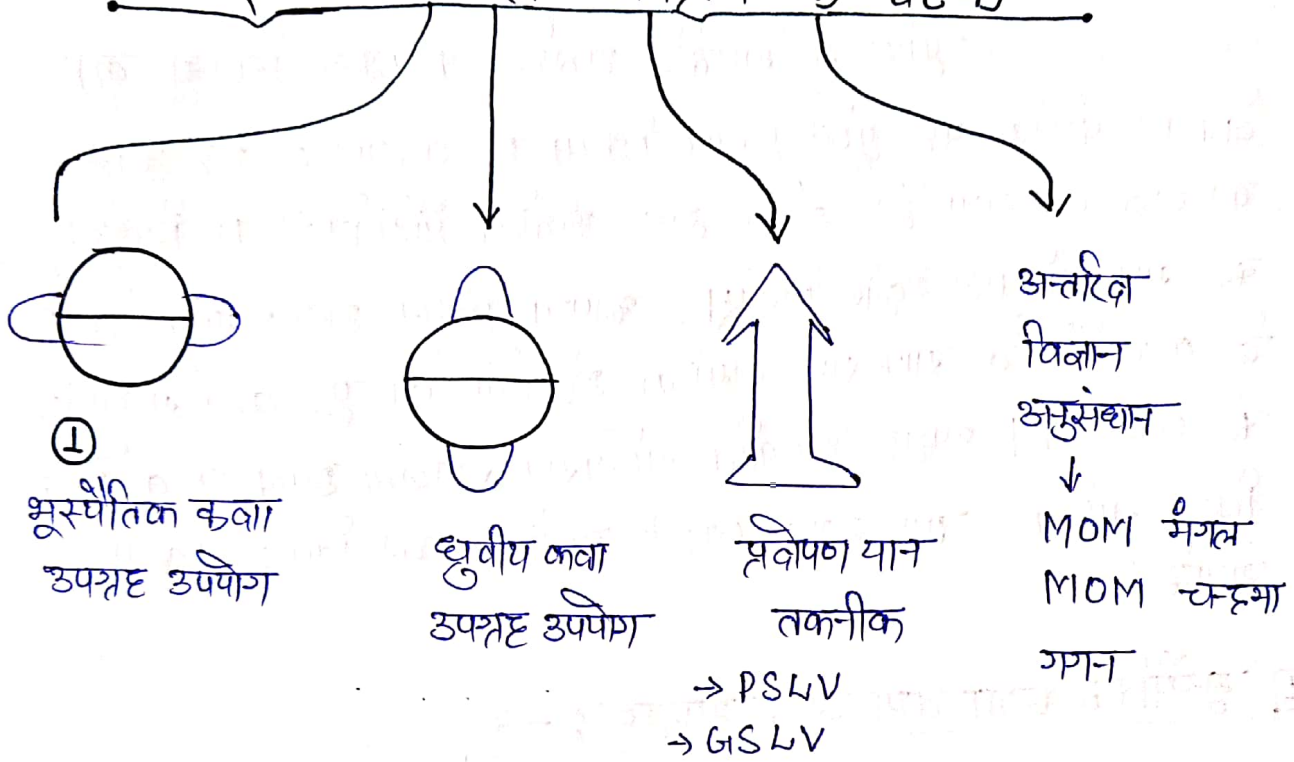 ①
भूस्थैतिक कक्षा
उपग्रह उपयोग
ध्रुवीय कक्षा
उपग्रह उपयोग
प्रक्षेपण यान
तकनीक
→ PSLV
→ GSLV
अन्तरिक्ष
विज्ञान
अनुसंधान
↓
MOM मंगल
MOM चन्द्रमा
गगन